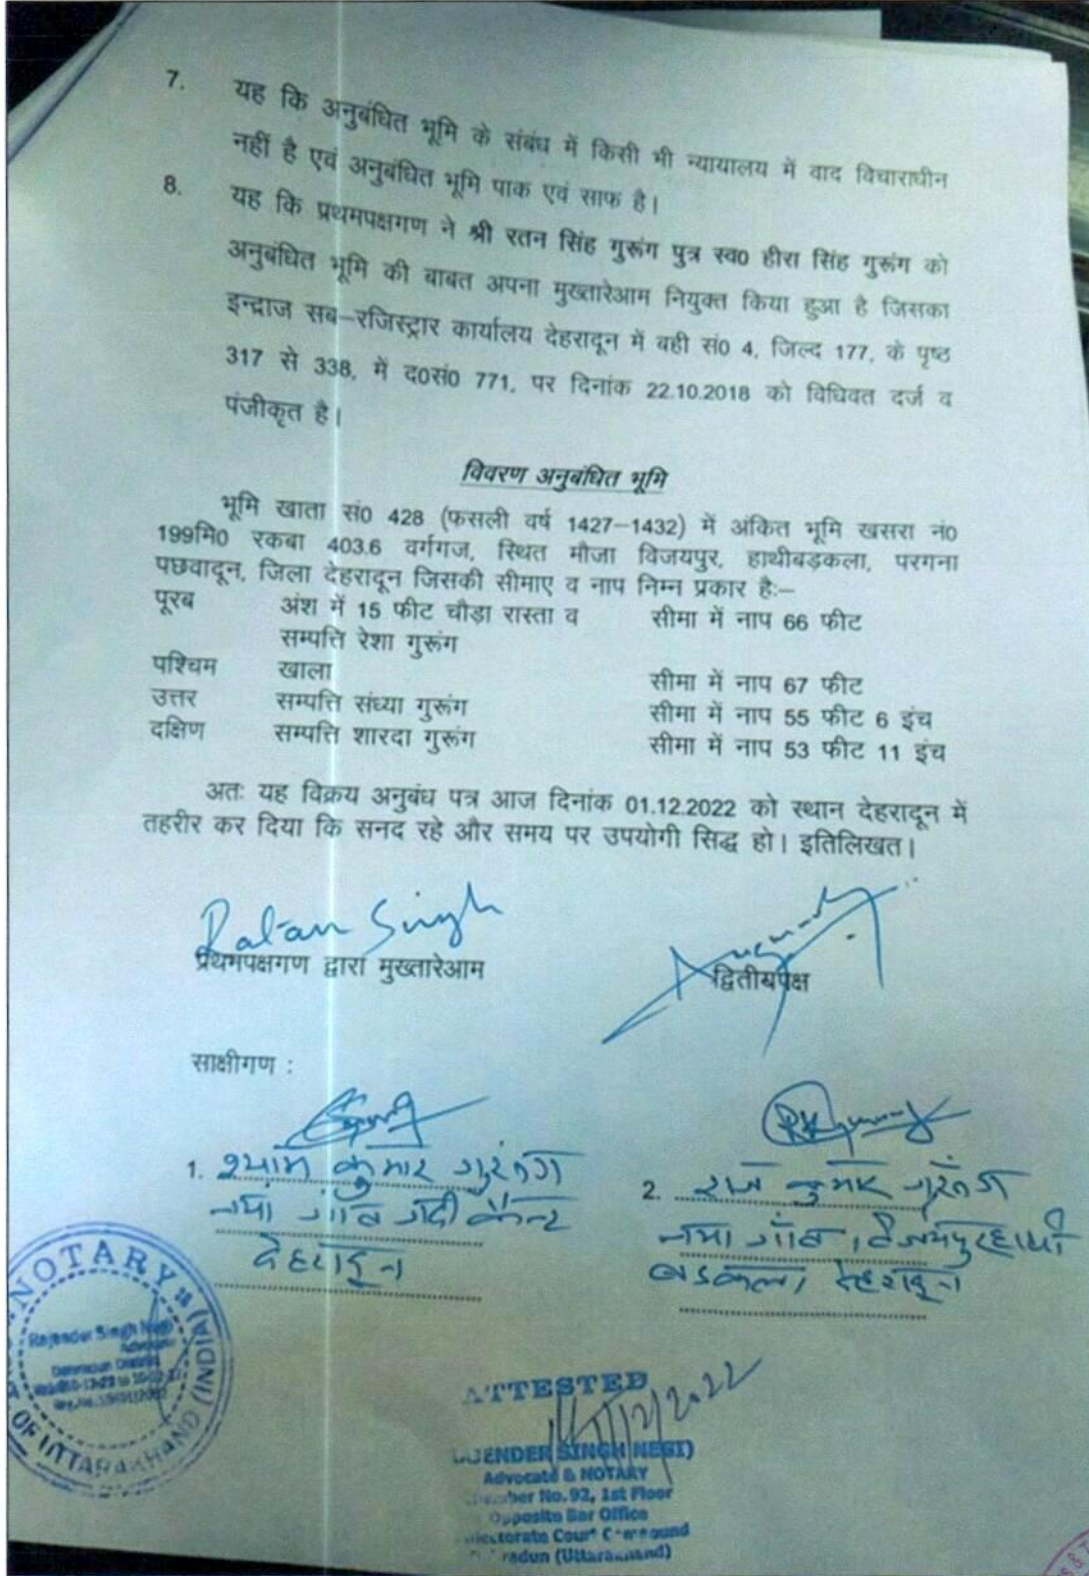 7. यह कि अनुबंधित भूमि के संबंध में किसी भी न्यायालय में वाद विचाराधीन
नहीं है एवं अनुबंधित भूमि पाक एवं साफ है।
8. यह कि प्रथमपक्षगण ने श्री रतन सिंह गुरूंग पुत्र स्व0 हीरा सिंह गुरूंग को
अनुबंधित भूमि की बाबत अपना मुख्तारेआम नियुक्त किया हुआ है जिसका
इन्द्राज सब–रजिस्ट्रार कार्यालय देहरादून में बही सं0 4, जिल्द 177, के पृष्ठ
317 से 338, में द0सं0 771, पर दिनांक 22.10.2018 को विधिवत दर्ज व
पंजीकृत है।
विवरण अनुबंधित भूमि
भूमि खाता सं0 428 (फसली वर्ष 1427–1432) में अंकित भूमि खसरा नं0
199मि0 रकबा 403.6 वर्गगज, स्थित मौजा विजयपुर, हाथीबड़कला, परगना
पछवादून, जिला देहरादून जिसकी सीमाए व नाप निम्न प्रकार है:–
पूरब अंश में 15 फीट चौड़ा रास्ता व सीमा में नाप 66 फीट
सम्पत्ति रेशा गुरूंग
पश्चिम खाला सीमा में नाप 67 फीट
उत्तर सम्पत्ति संध्या गुरूंग सीमा में नाप 55 फीट 6 इंच
दक्षिण सम्पत्ति शारदा गुरूंग सीमा में नाप 53 फीट 11 इंच
अतः यह विक्रय अनुबंध पत्र आज दिनांक 01.12.2022 को स्थान देहरादून में
तहरीर कर दिया कि सनद रहे और समय पर उपयोगी सिद्ध हो। इतिलिखत।
Ratan Singh
प्रथमपक्षगण द्वारा मुख्तारेआम
द्वितीयपक्ष
साक्षीगण :
1. श्याम कुमार गुरूंग
नया गांव गढी कैन्ट
देहरादून
2. राज कुमार गुरूंग
नया गांव, विजयपुर हाथी
बडकला, देहरादून
NOTARY
(INDIA)
OF UTTARAKHAND
Rajender Singh Negi
Advocate
ATTESTED
SINGH NEGI)
Advocate & NOTARY
No. 92, 1st Floor
Opposite Bar Office
Court
(Uttarakhand)